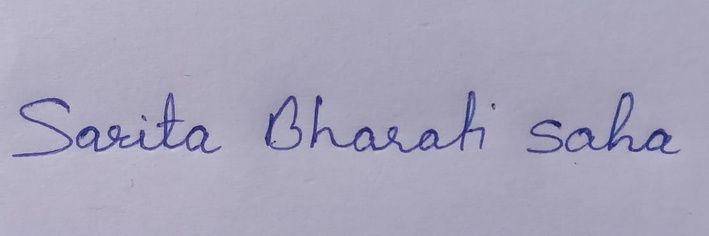 Sarita Bharati saha